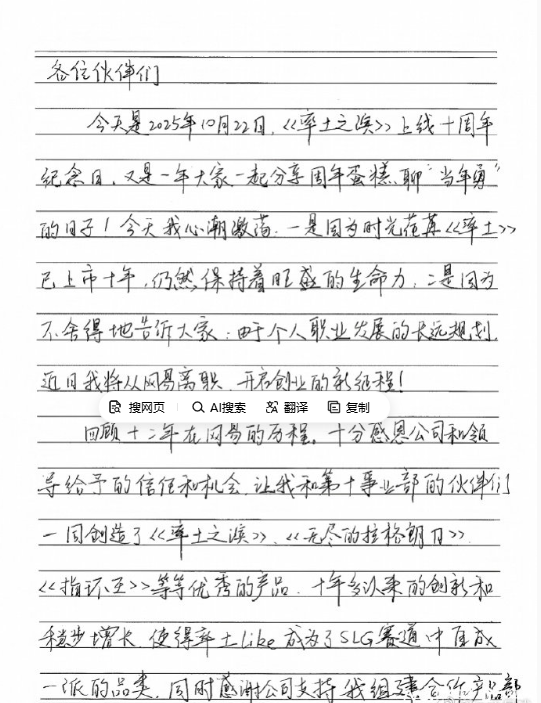 各位伙伴们
今天是2025年10月22日，《率土之滨》上线十周年
纪念日，又是一年大家一起分享周年蛋糕、聊“当年勇”
的日子！今天我心潮激荡，一是因为时光荏苒《率土》
已上市十年，仍然保持着旺盛的生命力，二是因为
不舍得地告诉大家：由于个人职业发展的长远规划，
近日我将从网易离职，开启创业的新征程！
搜网页 AI搜索 翻译 复制
回顾十二年在网易的历程，十分感恩公司和领
导给予的信任和机会，让我和第十事业部的伙伴们
一同创造了《率土之滨》、《无尽的拉格朗日》
《指环王》等等优秀的产品，十年多以来的创新和
稳步增长，使得率土Like成为了SLG赛道中自成
一派的品类，同时感谢公司支持我组建合作产品部